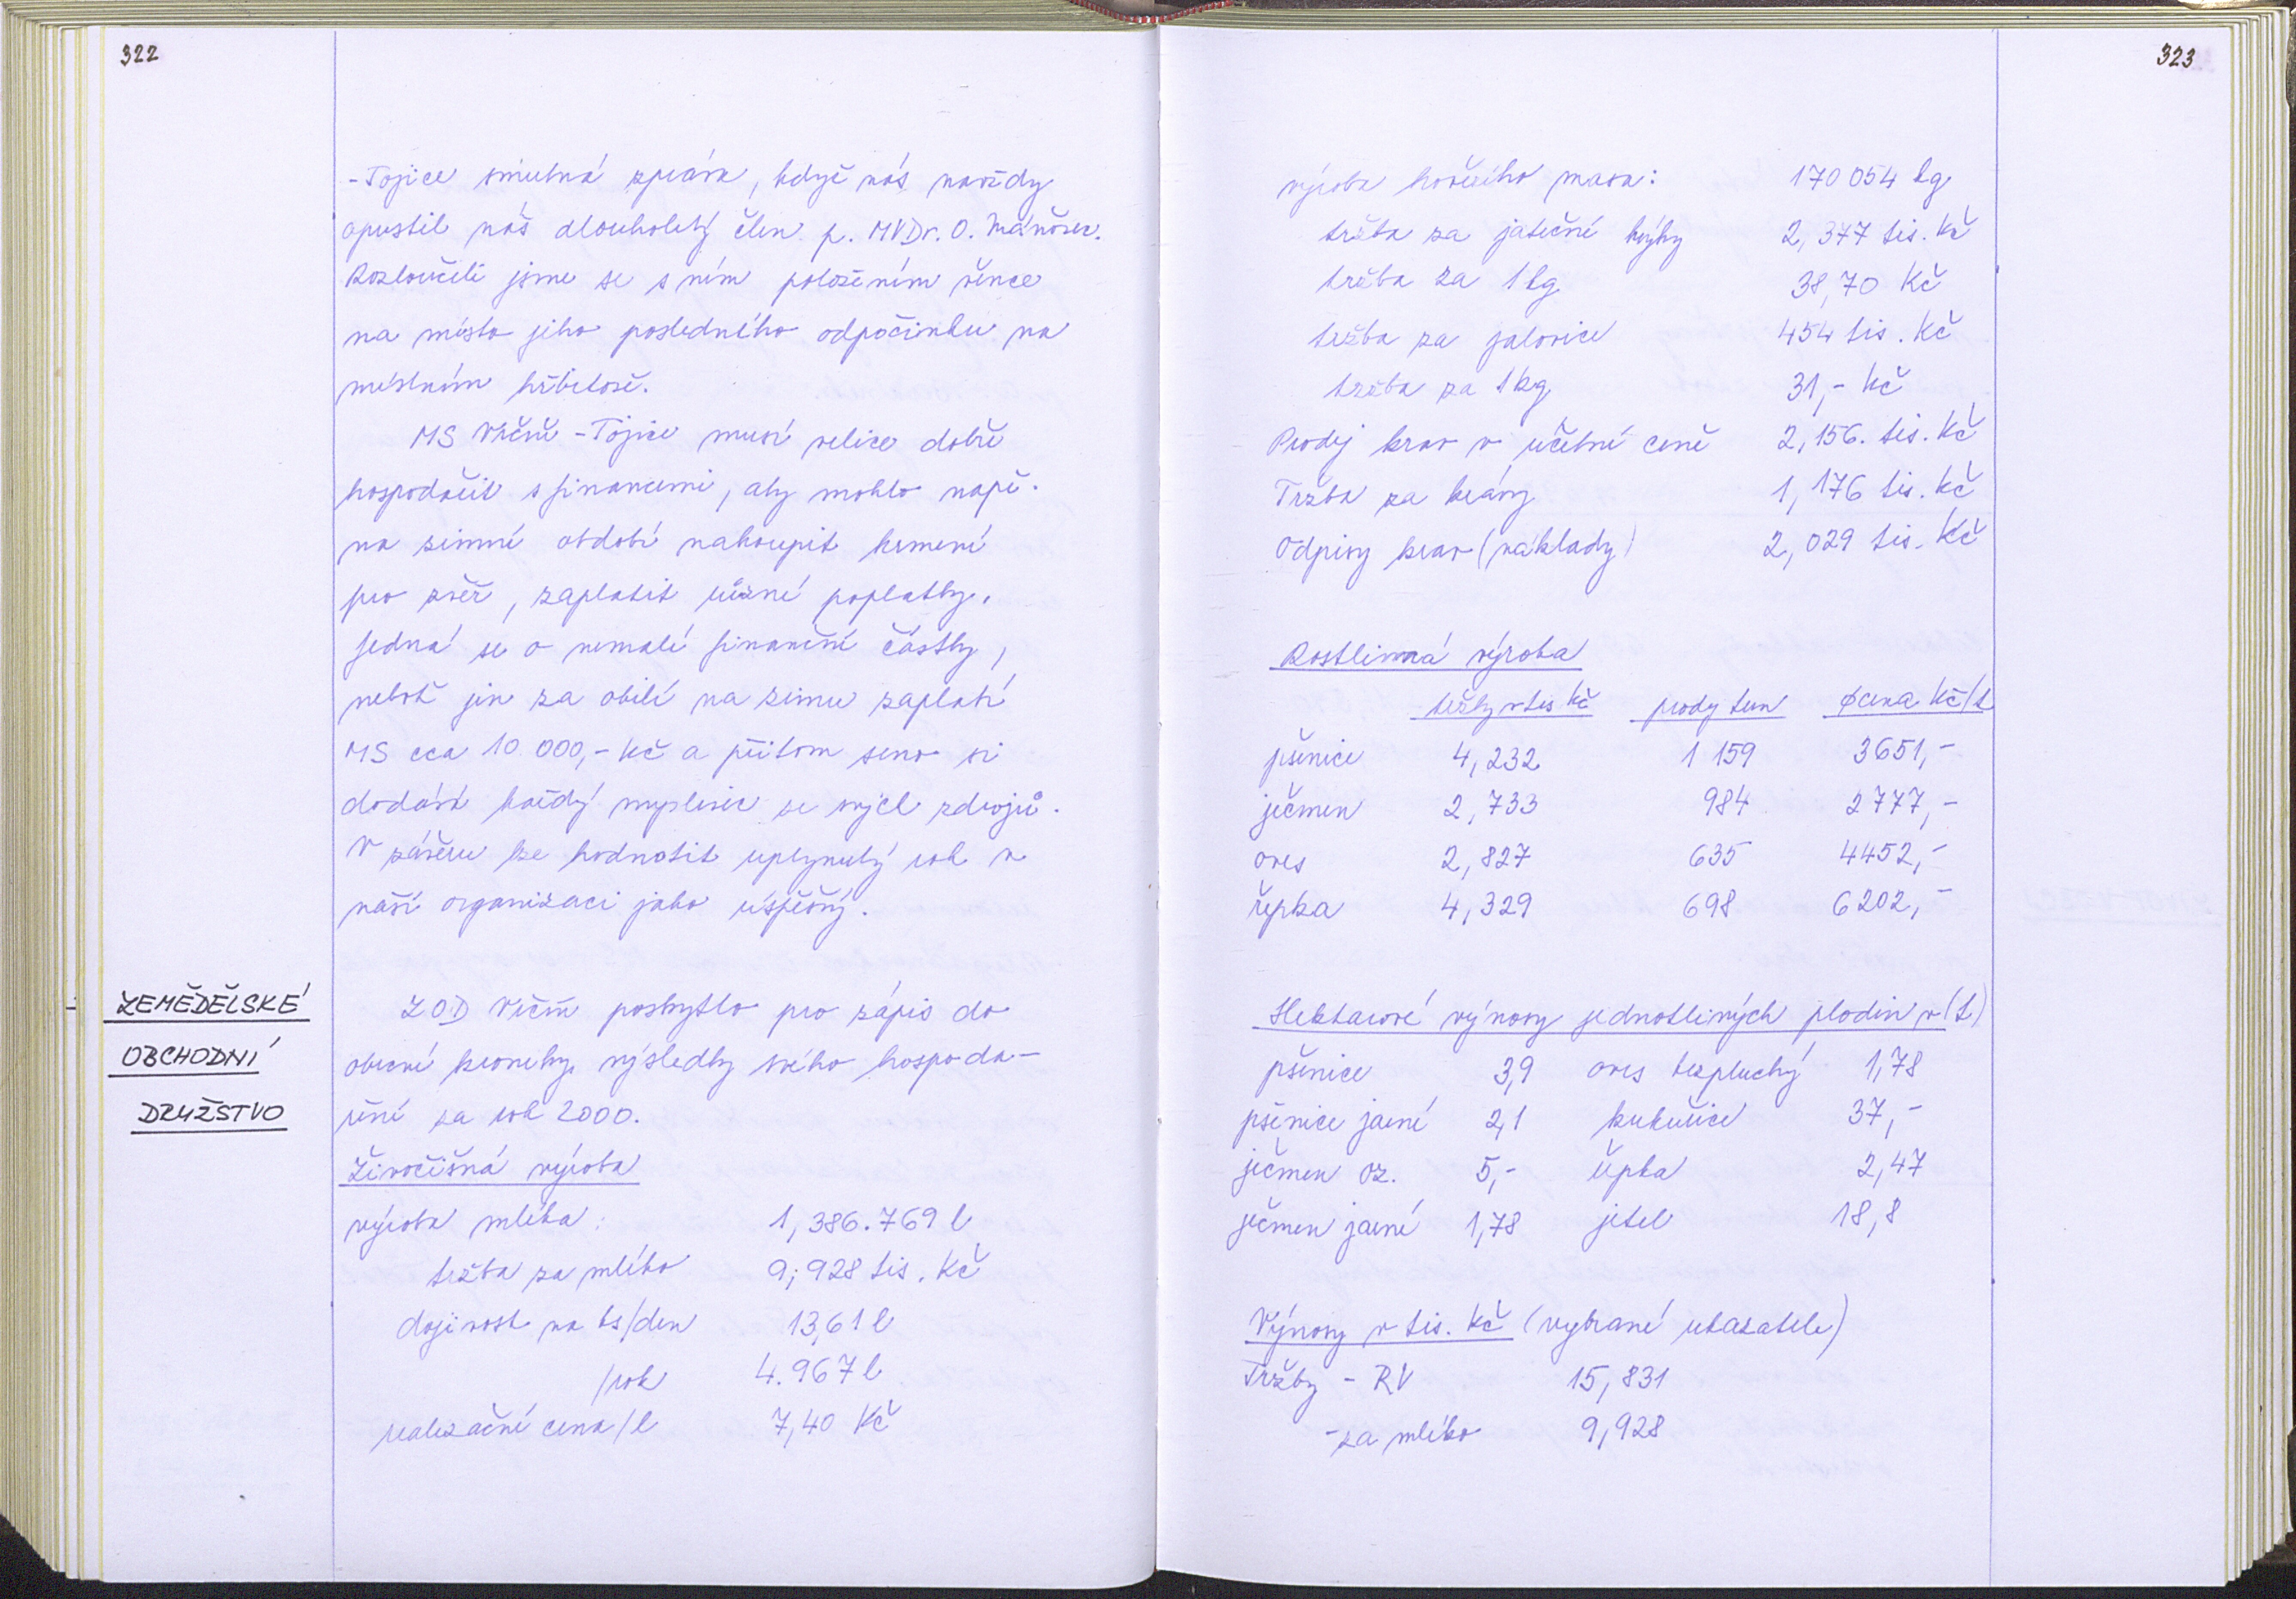 322
-Tojice smutná zpráva, když nás navždy
opustil náš dlouholetý člen p. MVDr. O. Mánošec.
Rozloučili jsme se s ním položením věnce
na místo jeho posledního odpočinku na
místním hřbitově.
MS Vrčeň - Tojice musí velice dobře
hospodařit s financemi, aby mohlo např.
na zimní období nakoupit krmení
pro zvěř, zaplatit různé poplatky.
Jedná se o nemalé finanční částky,
neboť jen za obilí na zimu zaplatí
MS cca 10.000,- Kč a přitom seno si
dodává každý myslivec ze svých zdrojů.
V závěru lze hodnotit uplynulý rok v
naší organizaci jako úspěšný.
ZEMĚDĚLSKÉ
OBCHODNÍ
DRUŽSTVO
ZOD Vrčeň poskytlo pro zápis do
obecní kroniky výsledky svého hospoda-
ření za rok 2000.
Živočišná výroba
výroba mléka: 1,386.769 l
tržba za mléko 9,928 tis. Kč
dojivost na ks/den 13,61 l
/rok 4.967 l
realizační cena/l 7,40 Kč
323
výroba hovězího masa: 170 054 kg
tržba za jateční býky 2,347 tis. Kč
tržba za 1 kg 38,70 Kč
tržba za jalovice 454 tis. Kč
tržba za 1 kg 31,- Kč
Prodej krav v účetní ceně 2,156. tis. Kč
Tržba za krávy 1,176 tis. Kč
Odpisy krav (náklady) 2,029 tis. Kč
Rostlinná výroba
tržby v tis Kč prodej tun øcena Kč/t
pšenice 4,232 1 159 3651,-
ječmen 2,733 984 2777,-
oves 2,827 635 4452,-
řepka 4,329 698 6202,-
Hektarové výnosy jednotlivých plodin v (t)
pšenice 3,9 oves bezpluchý 1,78
pšenice jarní 2,1 kukuřice 37,-
ječmen oz. 5,- řepka 2,47
ječmen jarní 1,78 jetel 18,8
Výnosy v tis. Kč (vybrané ukazatele)
Tržby - RV 15,831
-za mléko 9,928